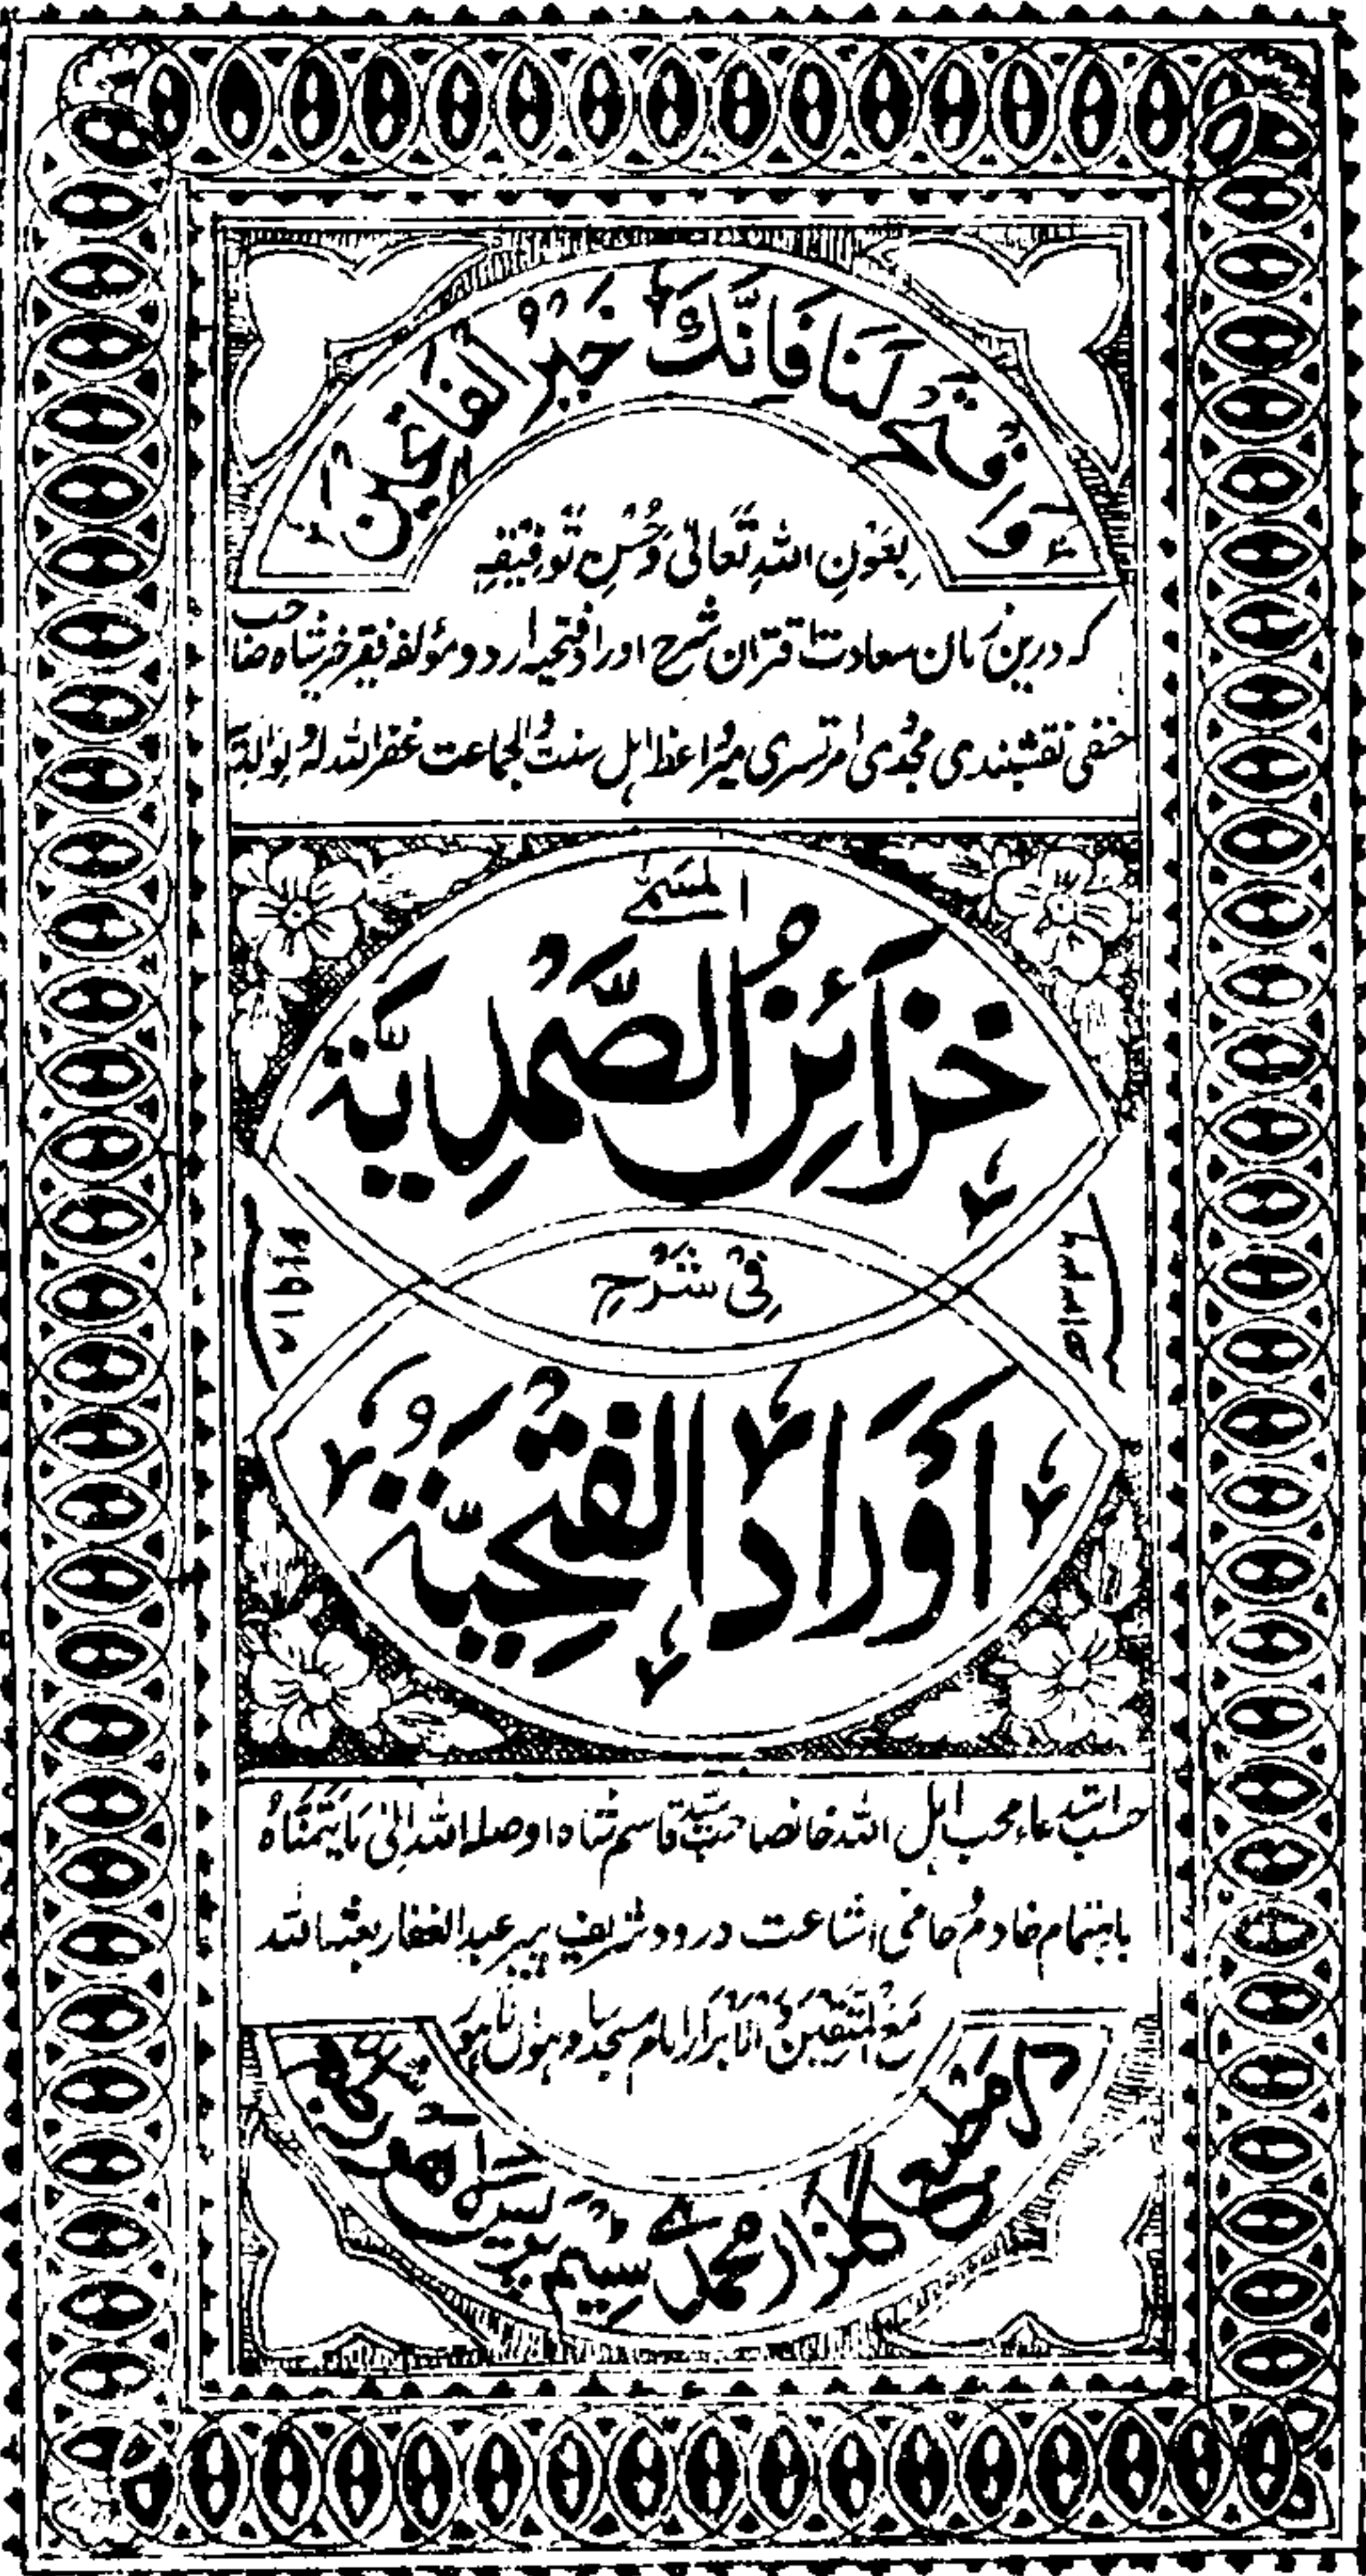 وَافْتَحْ لَنَا فَاِنَّكَ خَيْرُ الْفَاتِحِيْنَ
بِعَوْنِ اللّٰهِ تَعَالٰی وَحُسْنِ تَوْفِيْقِهٖ
که درین زمان سعادت اقتران شرح اوراد فتحیه اردو مؤلفه فقیر خیر شاه صاحب
حنفی نقشبندی مجددی امرتسری میر واعظ اہل سنت والجماعت غفر اللہ لہ ولوالدیہ
المسمے
خَزَائِنُ الصَّمَدِیَّة
۱۳۳۶ھ
فِیْ شَرْحِ
۱۹۱۸ء
اَوْرَادُ الْفَتْحِیَّةُ
حسب استدعاء محب اہل اللہ خانصاحب سید قاسم شاہ اوصلہ اللہ الٰی مَا یَتَمَنَّاہُ
باہتمام خادم حامی اشاعت درود شریف پیر عبد الغفار بعثہ اللہ
مَعَ الْمُتَّقِیْنَ وَالْاَبْرَار امام مسجد لاہور
در مطبع گلزار محمدی سٹیم پریس لاہور